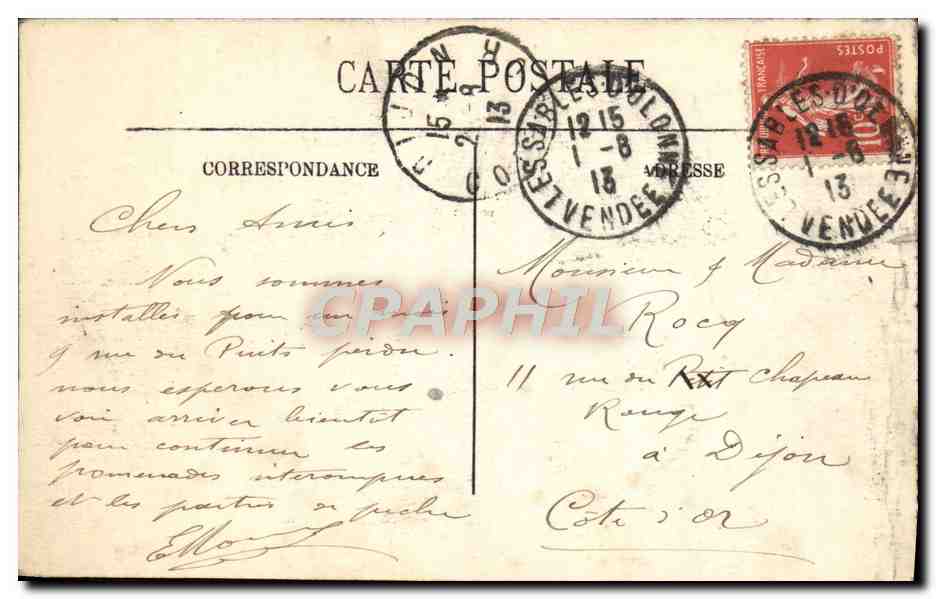 CARTE POSTALE
CORRESPONDANCE
ADRESSE
POSTES
FRANÇAISE
10
DIJON
15 *
2 - 8
13
LES SABLES-D'OLONNE
12 15
1 - 8
13
VENDEE
LES SABLES-D'OLONNE
12 15
1 - 8
13
VENDEE
CPAPHIL
Chers Amis,
Nous sommes
installés pour un mois
9 rue du Puits perdu.
nous esperons vous
voir arriver bientôt
pour continuer les
promenades interompues
et les parties de peche
Monsieur & Madame
Rocq
11 rue du Petit Chapeau
Rouge
à Dijon
Côte d'Or